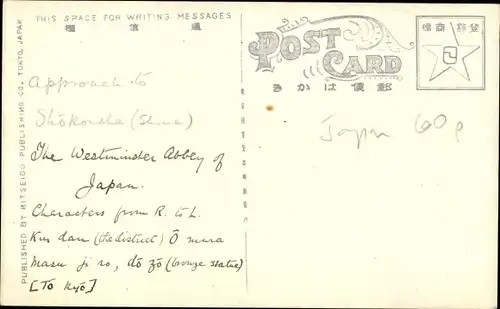 THIS SPACE FOR WRITING MESSAGES
欄信通
PUBLISHED BY NITSEIDO PUBLISHING CO., TOKYO, JAPAN
Approach to
Shōkonsha (Shrine)
The Westminster Abbey of
Japan.
Characters from R. to L.
Kudan (the district) Ō mura
Masu ji ro, dō zō (bronze statue)
[Tō kyō]
POST CARD
きかは便郵
標商録登
Japan 60p